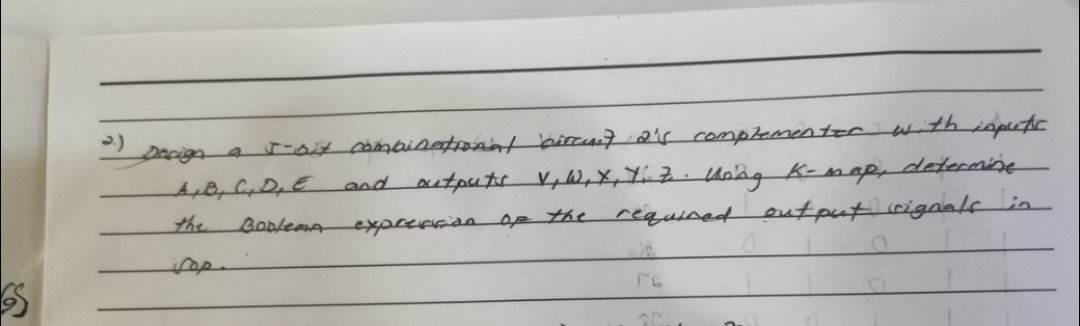 2.) Design a 5-bit combinational circuit 2's complementer with inputs
A, B, C, D, E and outputs V, W, X, Y, Z. Using K-map, determine
the Boolean expression of the required output signals in
sop.